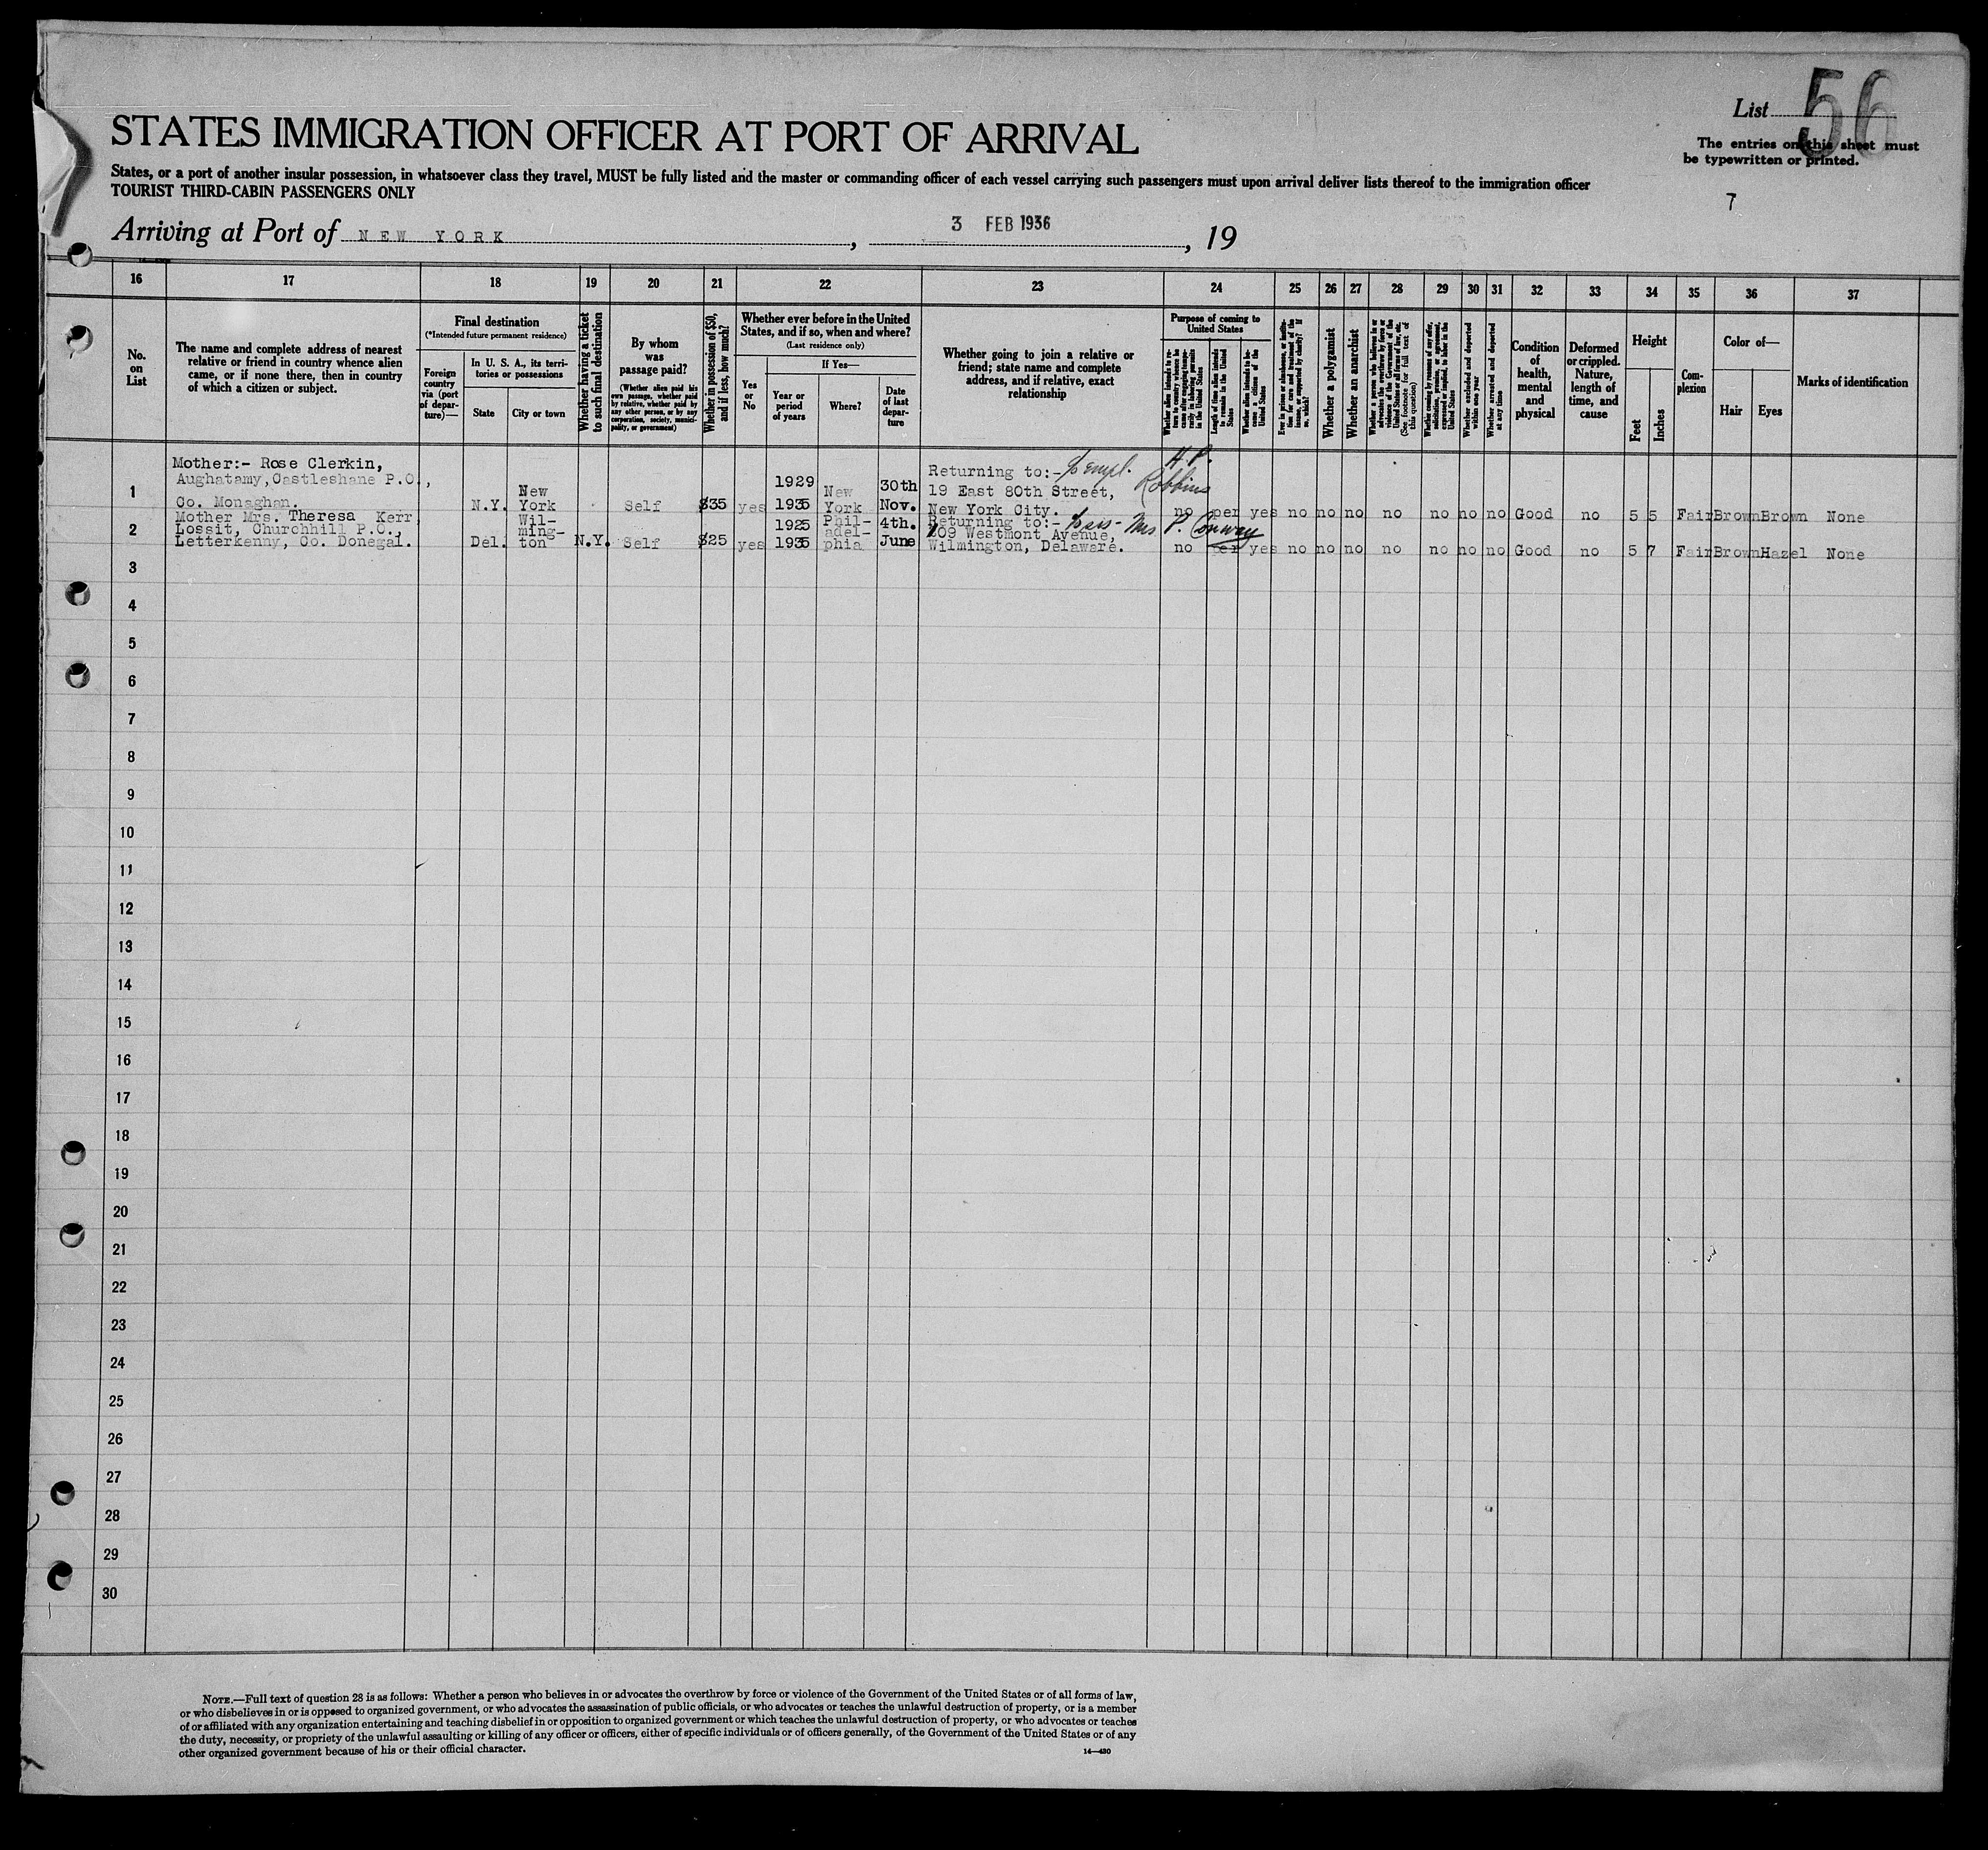 List 56
STATES IMMIGRATION OFFICER AT PORT OF ARRIVAL
The entries on this sheet must
be typewritten or printed.
States, or a port of another insular possession, in whatsoever class they travel, MUST be fully listed and the master or commanding officer of each vessel carrying such passengers must upon arrival deliver lists thereof to the immigration officer
TOURIST THIRD-CABIN PASSENGERS ONLY
7
Arriving at Port of NEW YORK, 3 FEB 1936, 19
16 17 18 19 20 21 22 23 24 25 26 27 28 29 30 31 32 33 34 35 36 37
No.
on
List
The name and complete address of nearest
relative or friend in country whence alien
came, or if none there, then in country
of which a citizen or subject.
Final destination
(*Intended future permanent residence)
Foreign
country
via (port
of depar-
ture)—
In U. S. A., its terri-
tories or possessions
State
City or town
Whether having a ticket
to such final destination
By whom
was
passage paid?
(Whether alien paid his
own passage, whether paid
by relative, whether paid by
any other person, or by any
corporation, society, munici-
pality, or government)
Whether in possession of $50,
and if less, how much?
Whether ever before in the United
States, and if so, when and where?
(Last residence only)
Yes
or
No
If Yes—
Year or
period
of years
Where?
Date
of last
depar-
ture
Whether going to join a relative or
friend; state name and complete
address, and if relative, exact
relationship
Purpose of coming to
United States
Whether alien intends to re-
turn to country whence he
came after engaging tempo-
rarily in laboring pursuits
in United States
Length of time alien intends
to remain in the United
States
Whether alien intends to be-
come a citizen of the
United States
Ever in prison or almshouse, or institu-
tion for care and treatment of the
insane, or supported by charity? If
so, which?
Whether a polygamist
Whether an anarchist
Whether a person who believes in or
advocates the overthrow by force or
violence of the Government of the
United States or all forms of law, etc.
(See footnote for full text of
this question)
Whether coming by reason of any offer,
solicitation, promise, or agreement,
expressed or implied, to labor in the
United States
Whether excluded and deported
within one year
Whether arrested and deported
at any time
Condition
of
health,
mental
and
physical
Deformed
or crippled.
Nature,
length of
time, and
cause
Height
Feet
Inches
Com-
plexion
Color of—
Hair
Eyes
Marks of identification
1
Mother:- Rose Clerkin,
Aughatamy, Castleshane P.O.,
Co. Monaghan.
N.Y.
New
York
Self
$35
yes
1929
1935
New
York
30th
Nov.
Returning to:- c/o empl. H.P.
19 East 80th Street, Robbins
New York City.
no per yes no no no no no no no Good no 5 5 Fair Brown Brown None
2
Mother Mrs. Theresa Kerr
Lossit, Churchhill P.O.,
Letterkenny, Co. Donegal.
Del.
Wil-
ming-
ton
N.Y.
Self
$25
yes
1925
1935
Phil-
adel-
phia
4th.
June
Returning to:- c/o sis- Mrs P. Conway
209 Westmont Avenue,
Wilmington, Delaware.
no per yes no no no no no no no Good no 5 7 Fair Brown Hazel None
3
4
5
6
7
8
9
10
11
12
13
14
15
16
17
18
19
20
21
22
23
24
25
26
27
28
29
30
NOTE.—Full text of question 28 is as follows: Whether a person who believes in or advocates the overthrow by force or violence of the Government of the United States or of all forms of law,
or who disbelieves in or is opposed to organized government, or who advocates the assassination of public officials, or who advocates or teaches the unlawful destruction of property, or is a member
of or affiliated with any organization entertaining and teaching disbelief in or opposition to organized government or which teaches the unlawful destruction of property, or who advocates or teaches
the duty, necessity, or propriety of the unlawful assaulting or killing of any officer or officers, either of specific individuals or of officers generally, of the Government of the United States or of any
other organized government because of his or their official character.
14—430